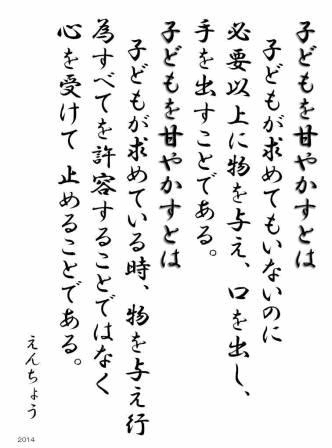 子どもを甘やかすとは
子どもが求めてもいないのに
必要以上に物を与え、口を出し、
手を出すことである。
子どもを甘やかすとは
子どもが求めている時、物を与え行
為すべてを許容することではなく
心を受けて 止めることである。
えんちょう
2014